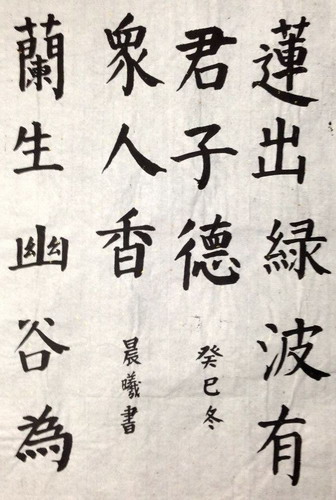 蓮出緑波有
君子德
癸巳冬
蘭生幽谷為
衆人香
晨曦書